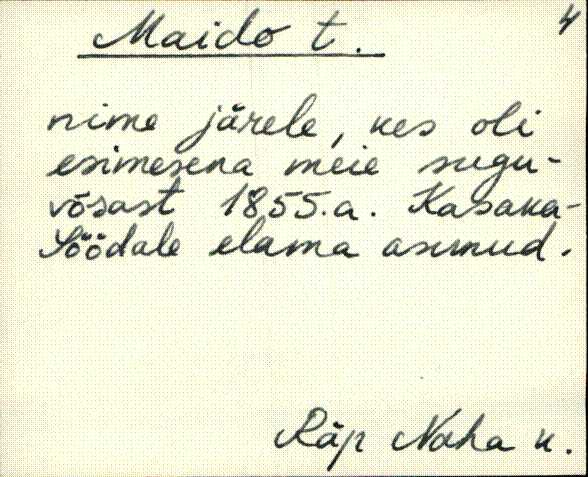 4
Maido t.
nime järele, kes oli
esimesena meie sugu-
võsast 1855.a. Kasaka-
Söödale elama asunud.
Räp Naha k.